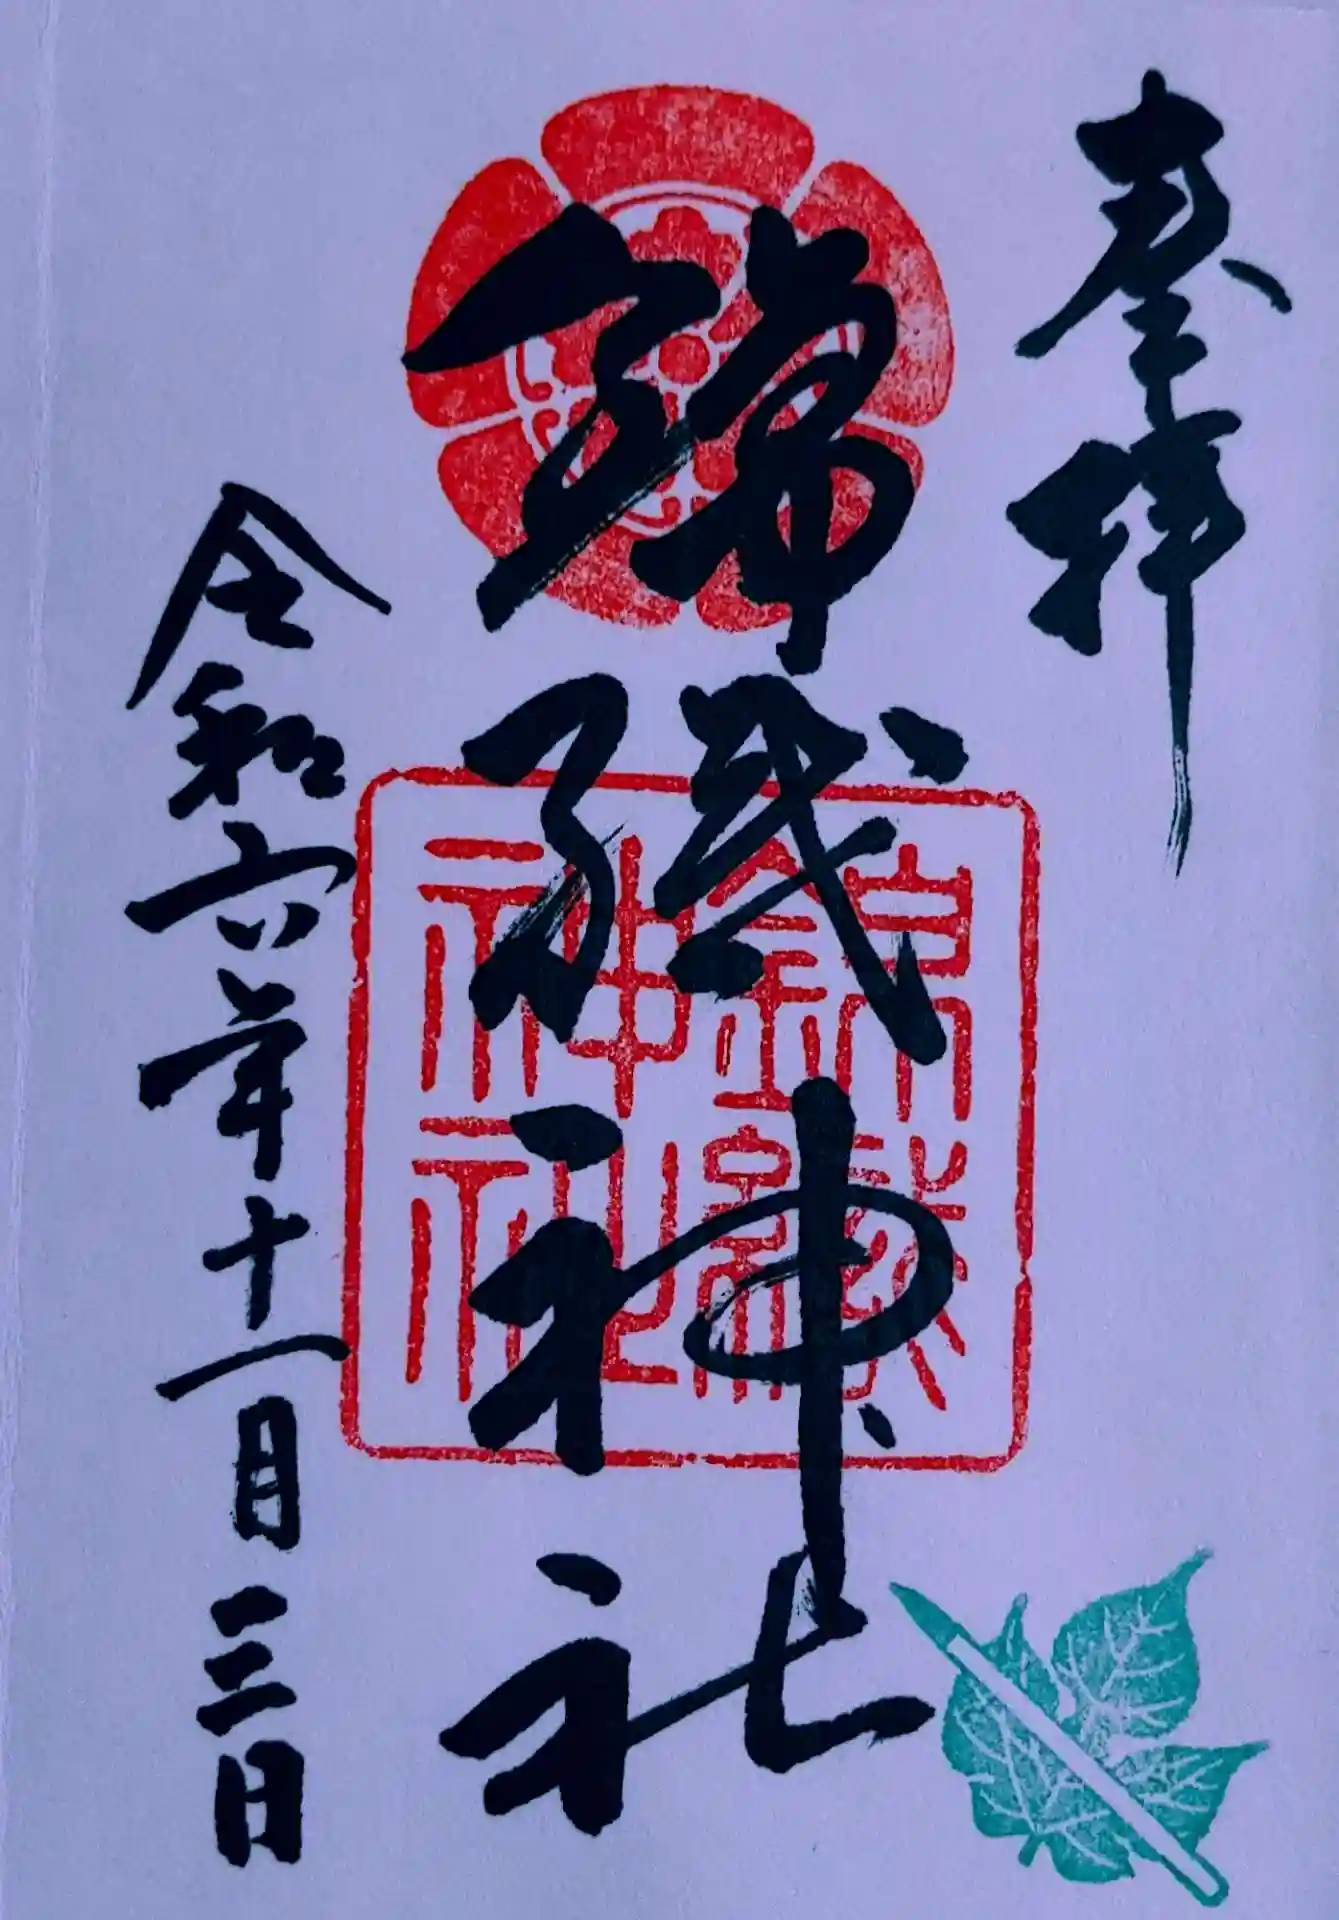 奉拝
錦織神社
令和六年十一月三日
錦織
神社